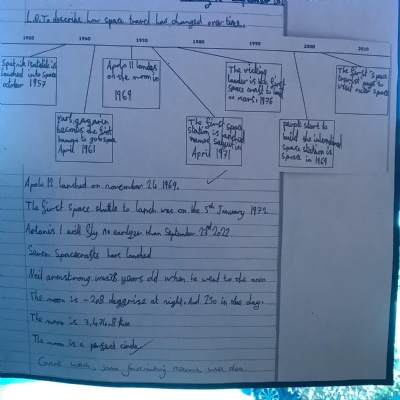 L.O. To describe how space travel has changed over time.
1950 1960 1970 1980 1990 2000 2010
Sputnik 1 satellite is
launched into space
october 1957
Yuri gagarin
becomes the first
human to go to space
April 1961
Apolo 11 landes
on the moon in
1969
The first space
station is launched
named salyut in
April 1971
The viking
lander is the first
space craft to land
on mars 1976
people start to
build the
space station is
space in 1969
The first space
visit outer space
Apolo 12 lanched on november 24 1969.
The first space shuttle to lanch was on the 5th January 1972
Artemis 1 will fly no earlyer than September 23rd 2022
Seven Spacecrafts have landed
Neil armstrong was 38 years old when he went to the moon
The moon is -208 at night. And 250 in the day.
The moon is 3,474.8 Km
The moon is a perfect circle.
Great work, some fascinating research well done.